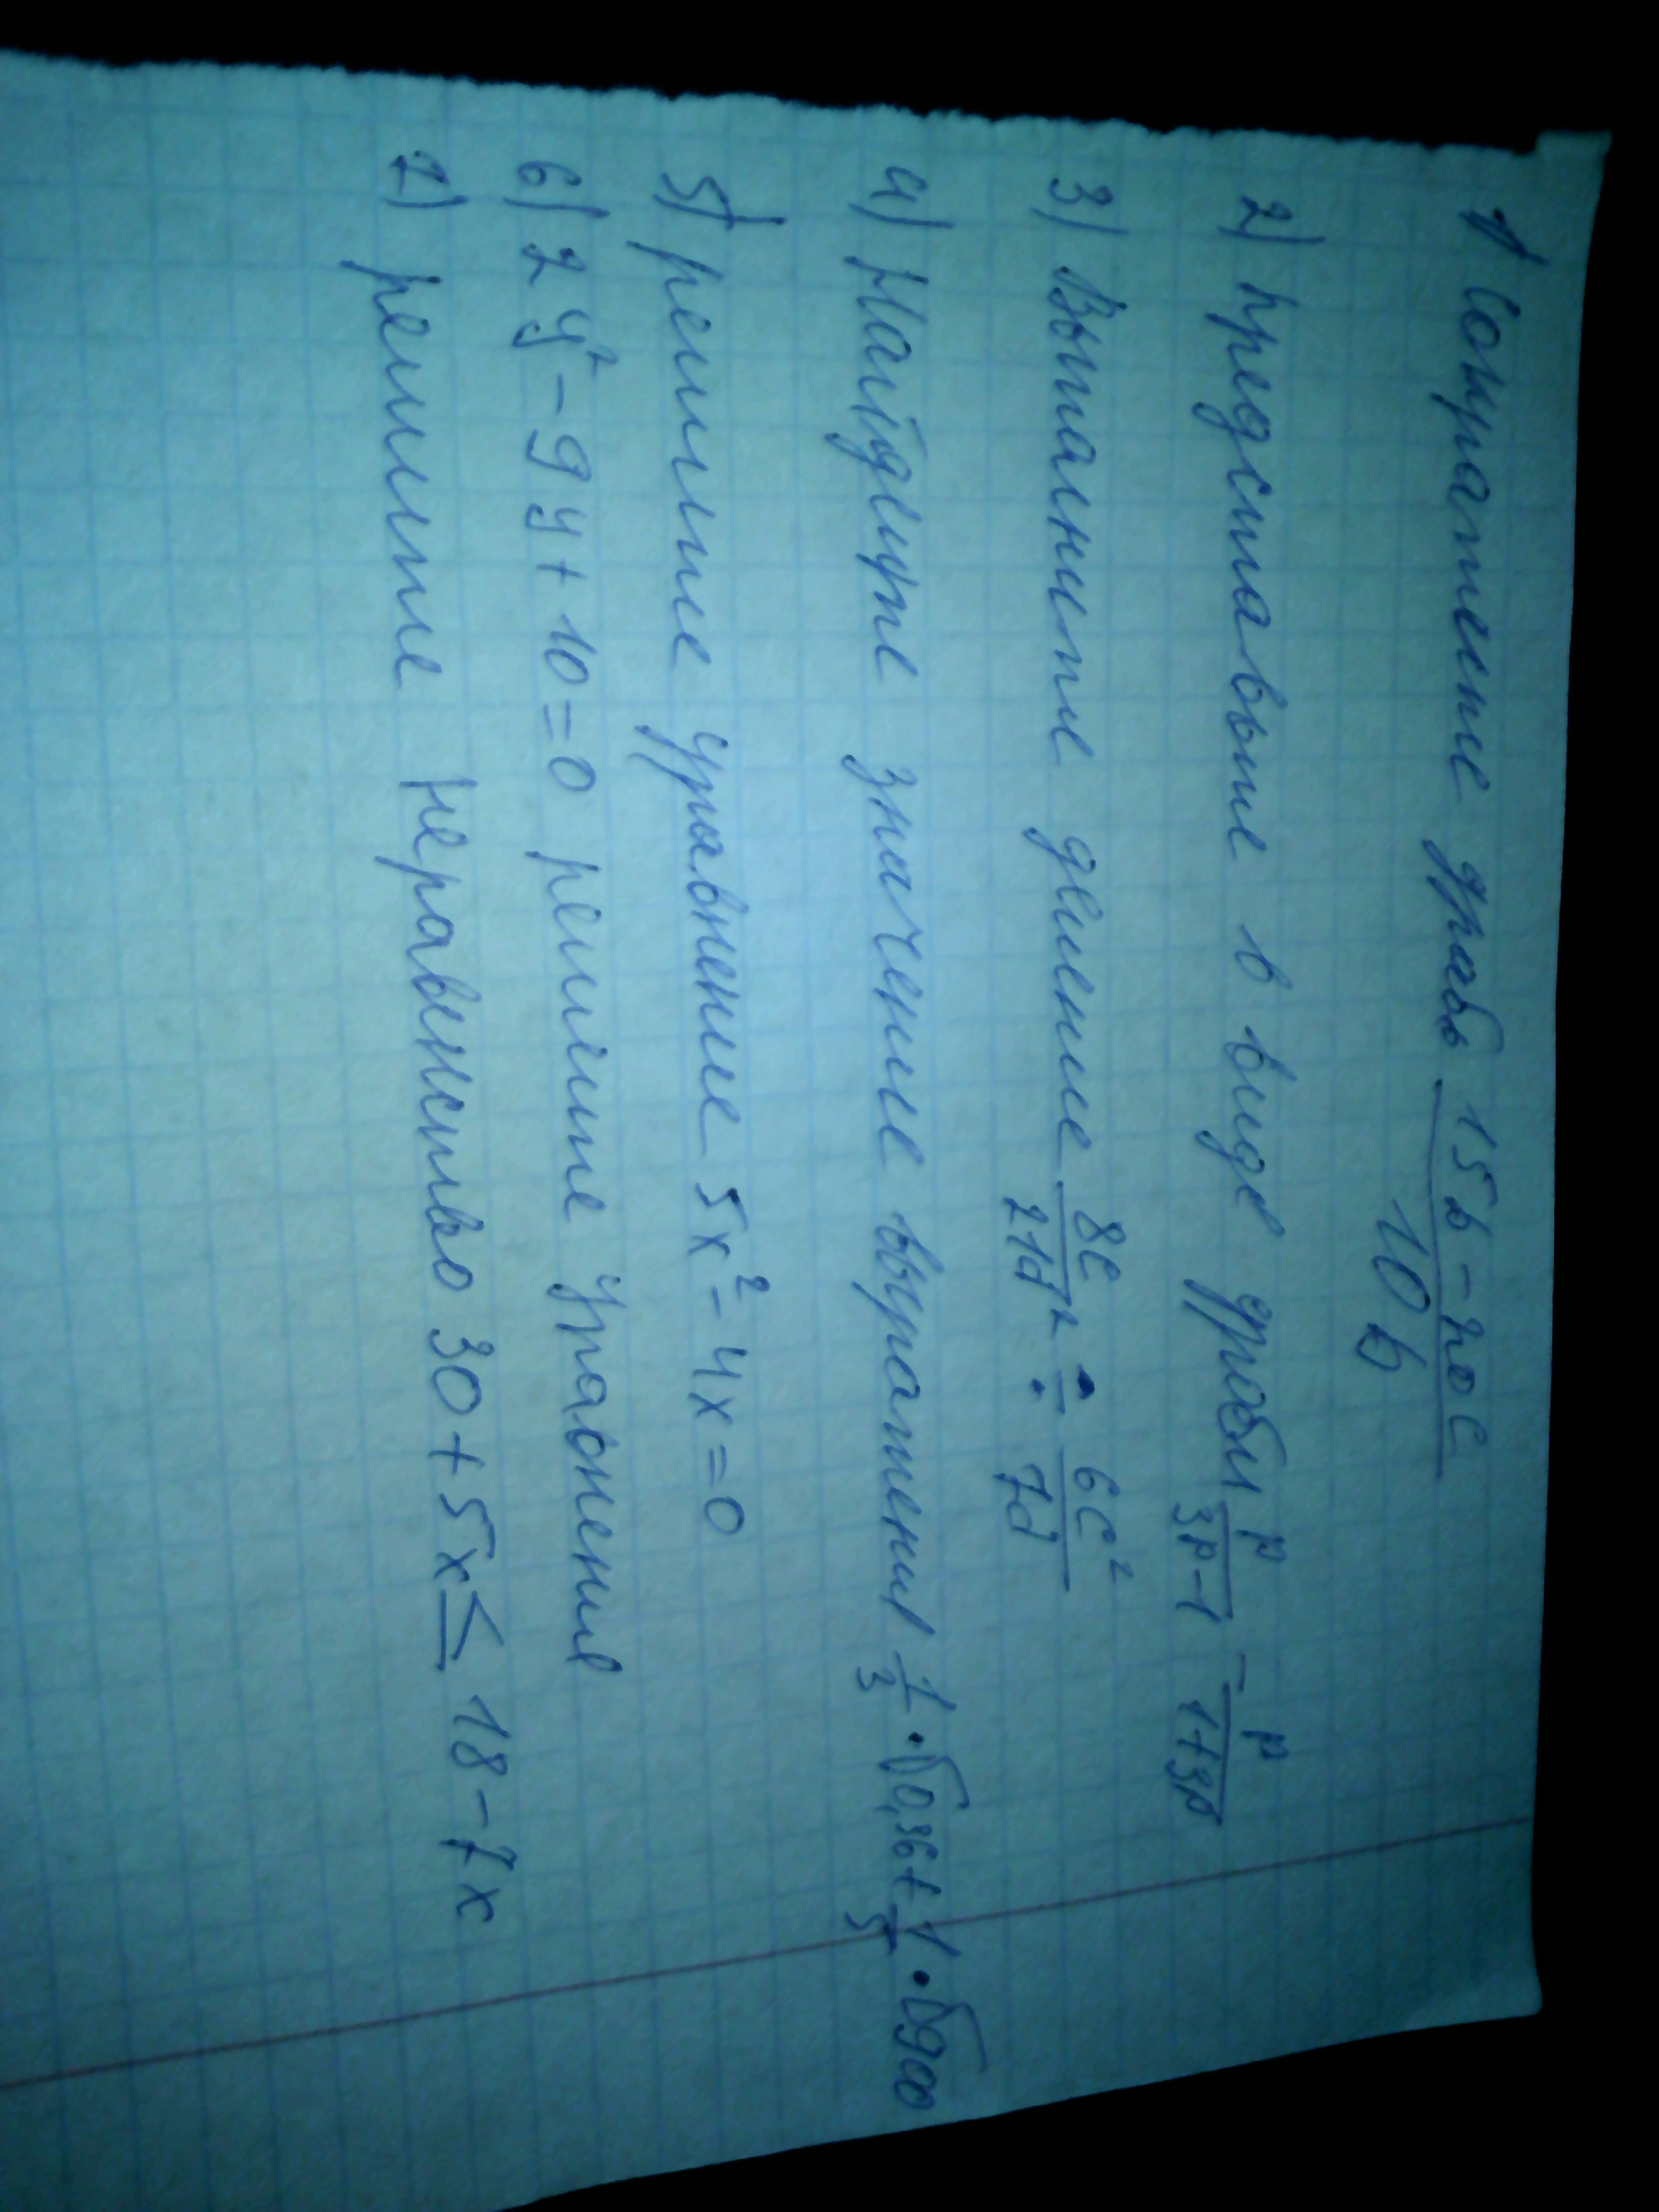 1) Сократите дробь (15b - 20c)/(10b)
2) представьте в виде дроби p/(3p-1) - p/(1+3p)
3) Выполните деление 8c/(21d²) : 6c²/(7d)
4) Найдите значение выражения 1/3 · √0,36 + 1/5 · √900
5) решите уравнение 5x² - 4x = 0
6) 2y² - 9y + 10 = 0 решите уравнения
7) решите неравенство 30 + 5x ≤ 18 - 7x